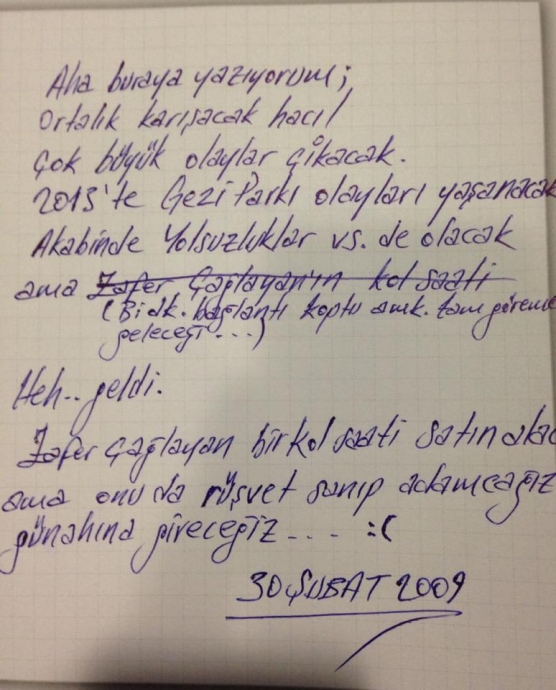 Aha buraya yazıyorum;
Ortalık karışacak hacı!
Çok büyük olaylar çıkacak.
2013'te Gezi Parkı olayları yaşanacak
Akabinde Yolsuzluklar vs. de olacak
ama Zafer Çağlayan'ın kol saati
(Bi dk. bağlantı koptu amk. tam göreme
geleceği...)
Heh.. geldi.
Zafer Çağlayan bir kol saati satın alac
ama onu da rüşvet sanıp adamcağız
günahına gireceğiz.... :(
30 ŞUBAT 2009